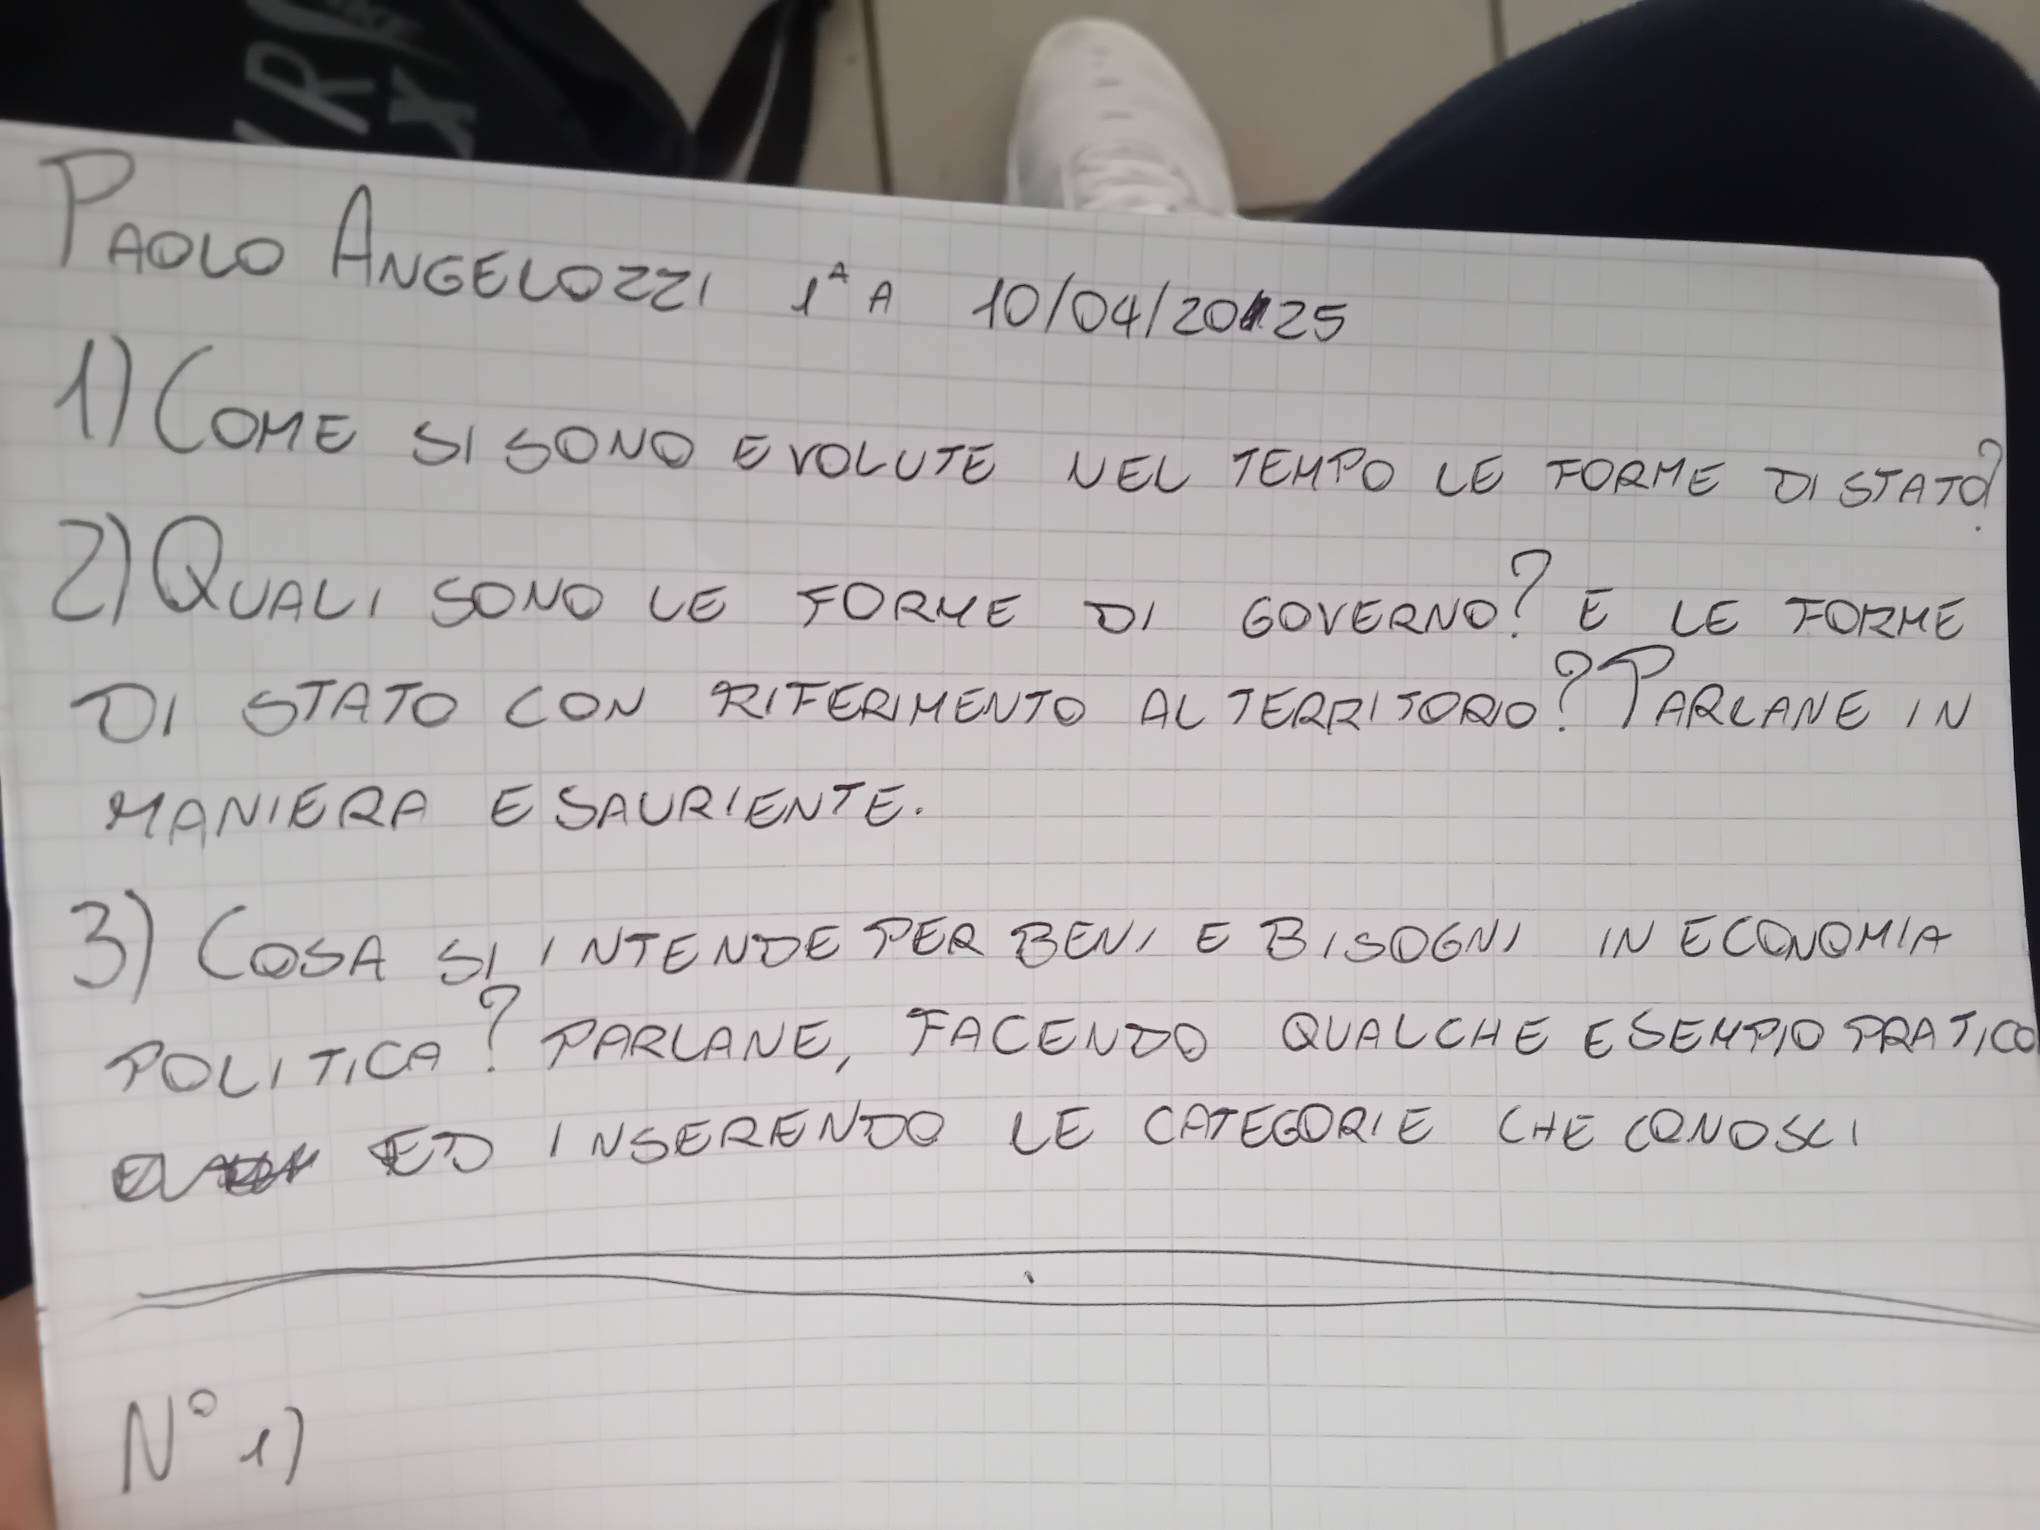 PAOLO ANGELOZZI 1ª A 10/04/2025
1) COME SI SONO EVOLUTE NEL TEMPO LE FORME DI STATO?
2) QUALI SONO LE FORME DI GOVERNO? E LE FORME
DI STATO CON RIFERIMENTO AL TERRITORIO? PARLANE IN
MANIERA ESAURIENTE.
3) COSA SI INTENDE PER BENI E BISOGNI IN ECONOMIA
POLITICA? PARLANE, FACENDO QUALCHE ESEMPIO PRATICO
ED INSERENDO LE CATEGORIE CHE CONOSCI
N° 1)